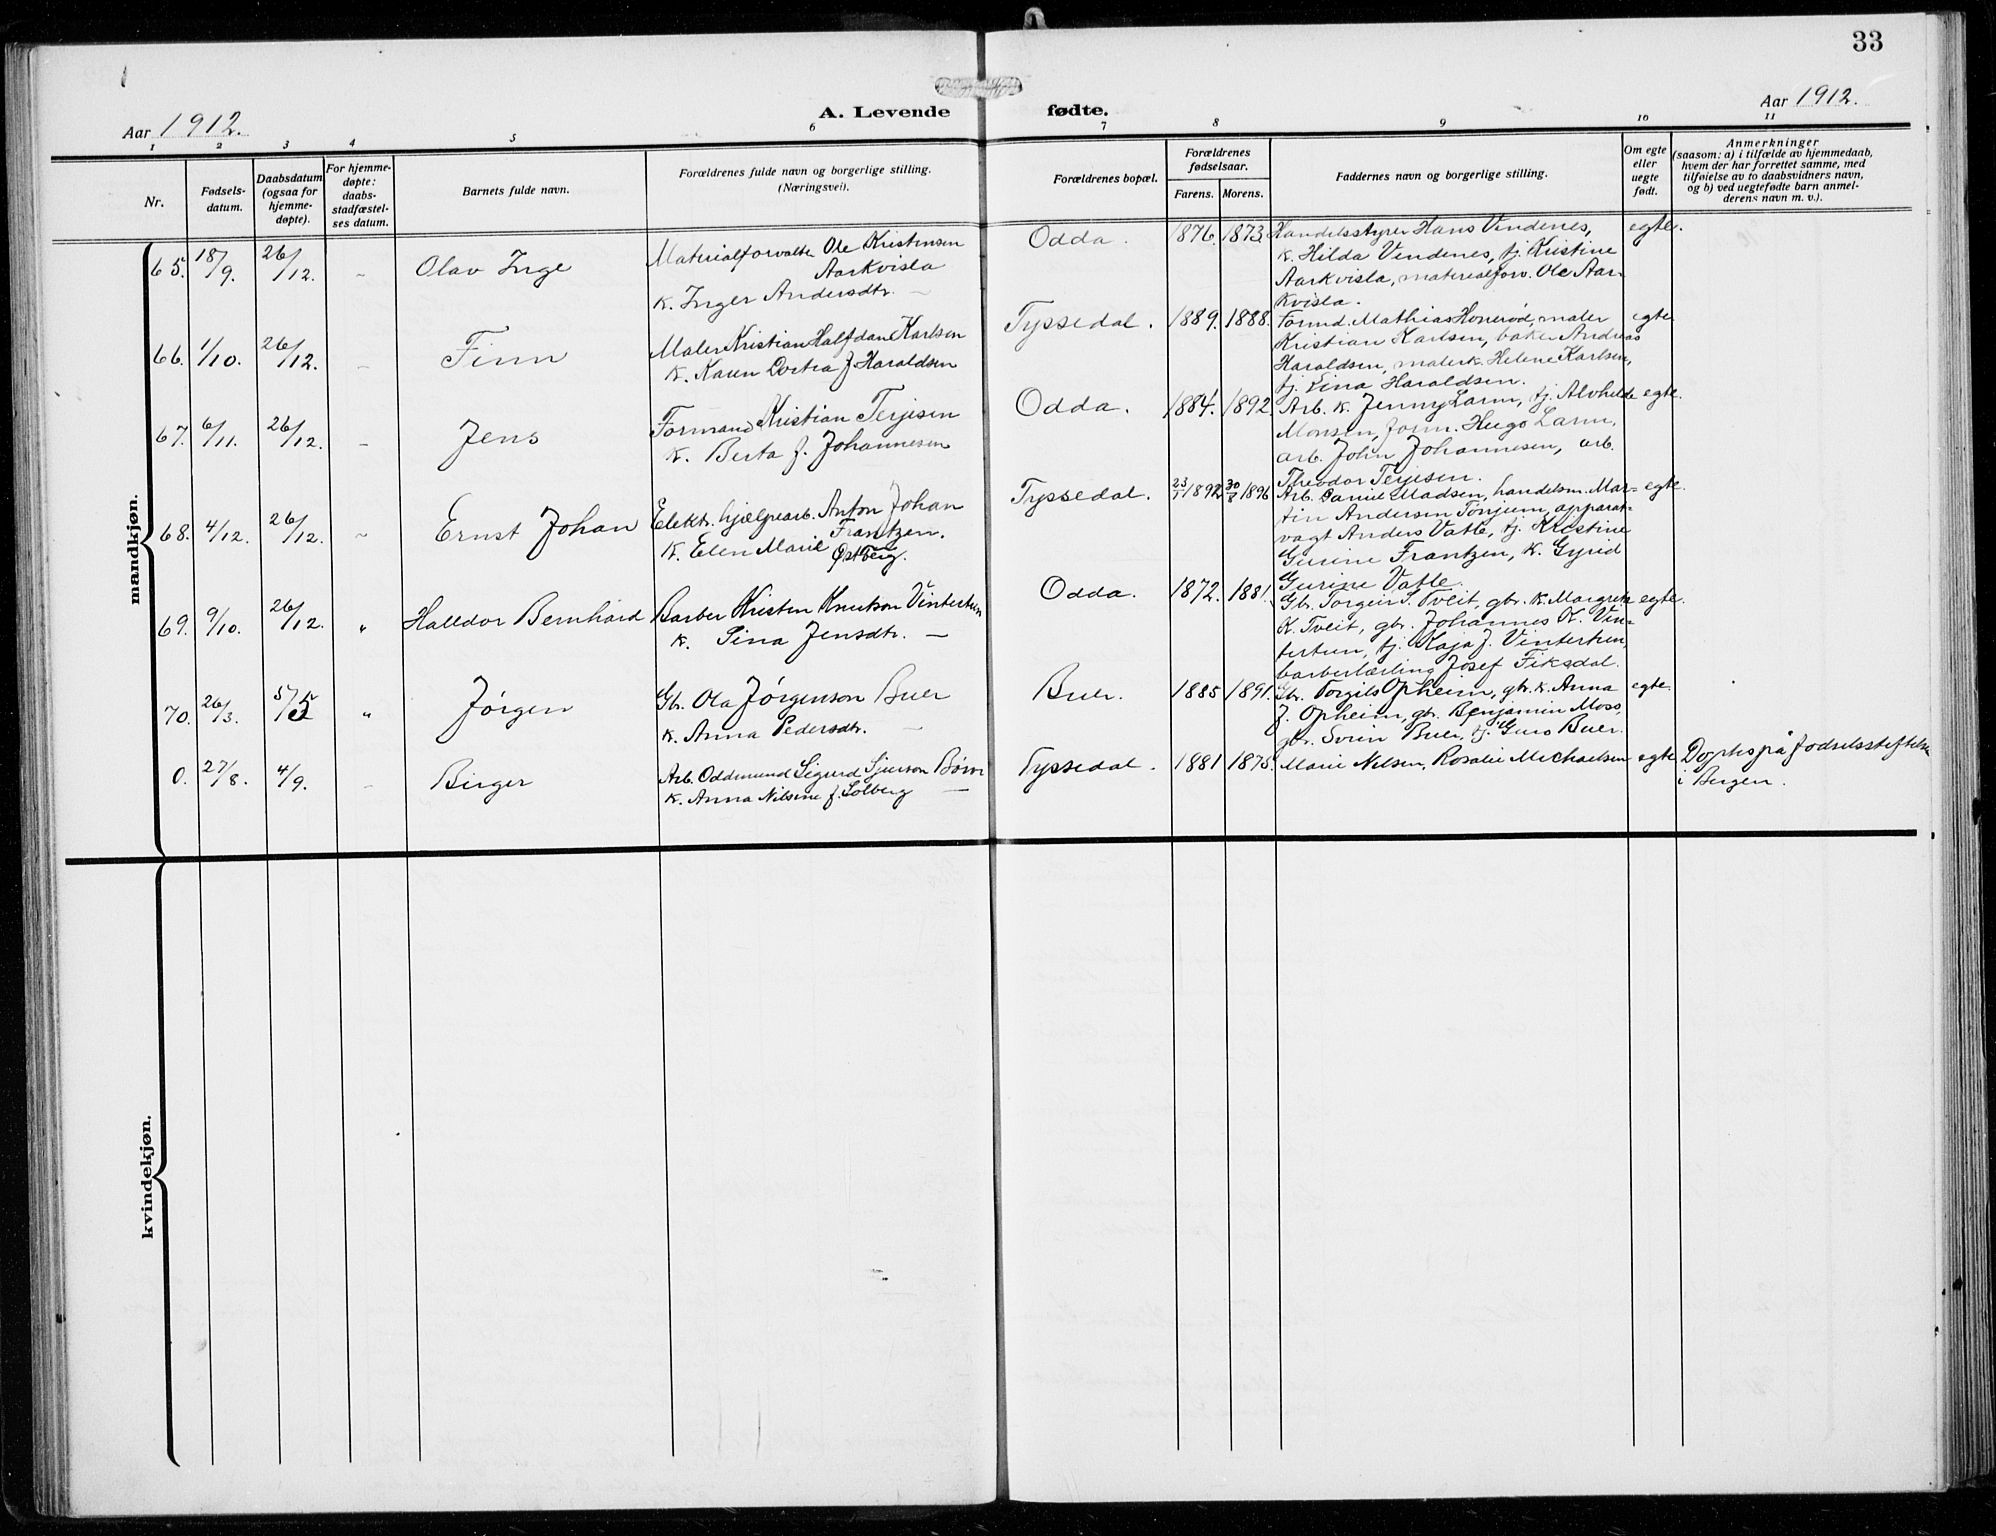 33
Aar 1912.
A. Levende fødte.
Aar 1912.
1 2 3 4 5 6 7 8 9 10 11
Nr.
Fødsels-
datum.
Daabsdatum
(ogsaa for
hjemme-
døpte).
For hjemme-
døpte:
daabs-
stadfæstel-
ses datum.
Barnets fulde navn.
Forældrenes fulde navn og borgerlige stilling.
(Næringsvei).
Forældrenes bopæl.
Forældrenes
fødselsaar.
Farens. Morens.
Faddernes navn og borgerlige stilling.
Om egte
eller
uegte
født.
Anmerkninger
(saasom: a) i tilfælde av hjemmedaab,
hvem der har forrettet samme, med
tilføielse av to daabsvidners navn,
og b) ved uegtefødte barn anmel-
derens navn m. v.).
mandkjøn.
65. 18/9. 26/12. - Olav Inge
Materialforvalte Ole Kristensen
Aarkvisla
k. Inger Andersdtr. —
Odda. 1876. 1873
Handelsstyrer Hans Vindenes,
k. Hilda Vindenes, tj. Kristine
Aarkvisla, materialforv. Ole Aar-
kvisla.
egte.
66. 1/10. 26/12. - Finn
Maler Kristian Halfdan Karlsen
k. Karen f. Haraldsen
Tyssedal. 1889. 1888.
Formd. Mathias Honerød, maler
Kristian Karlsen, baker Andreas
Haraldsen, malerk. Helene Karlsen,
tj. Lina Haraldsen.
egte
67. 6/11. 26/12. - Jens
Formand Kristian Terjesen
k. Berta f. Johannesen
Odda. 1884. 1892.
Arb. k. Jenny Larm, tj. Alvhilde
Monsen, form. Hugo Larm,
arb. John Johannesen, arb.
Theodor Terjesen.
egte.
68. 4/12. 26/12. - Ernst Johan
Elekt. hjælpearb. Anton Johan
Frantzen.
k. Elen Marie Østberg.
Tyssedal. 23/1 1892 30/8 1896
Arb. Daniel Madsen, handelsm. Mar-
tin Andersen Tønjum, apparat-
vagt Anders Vatle, tj. Kristine
Gurine Frantzen, k. Gyrid
Gurine Vatle.
egte.
69. 9/10. 26/12. " Halldor Bernhard
Barber Kristen Knutson Vintertun
k. Sina Jensdtr. —
Odda. 1872. 1881.
Gbr. Torgeir S. Tveit, gbr. k. Margreta
K. Tveit, gbr. Johannes K. Vin-
tertun, tj. Kaja J. Vintertun,
barberlærling Josef Fiksdal.
egte.
70. 26/3. 5/5 " Jørgen
Gbr. Ola Jørgenson Buer
k. Anna Pedersdtr. —
Buer. 1885 1891.
Gbr. Torgils Opheim, gbr. k. Anna
J. Opheim, gbr. Benjamin Moss,
gbr. Svein Buer, tj. Guro Buer.
egte.
0. 27/8. 4/9. - Birger
Arb. Oddmund Sigurd Sjurson Børve
k. Anna Nilsine f. Solberg —
Tyssedal. 1881 1875.
Marie Nilsen, Rosalie Michaelsen
egte
Døpt på fødselsstiftelse
i Bergen.
kvindekjøn.